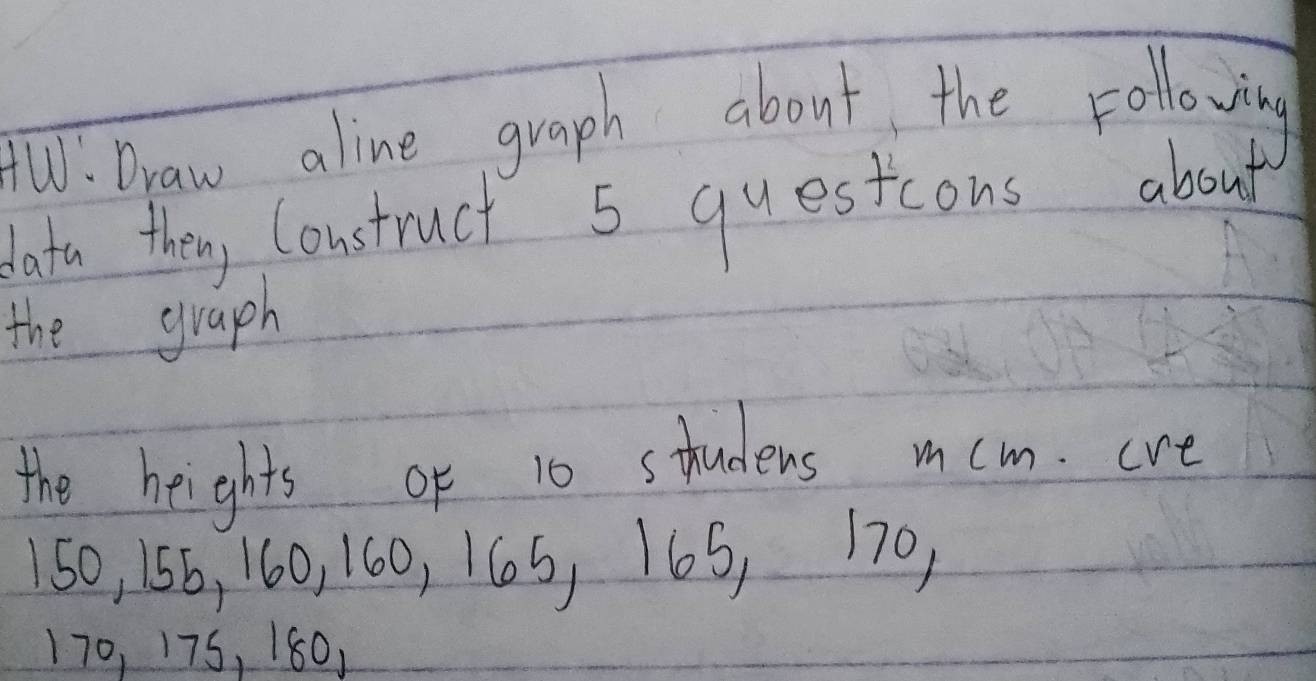 HW: Draw aline graph about, the Following
data then, Construct 5 questions about
the graph
the heights of 10 studens in cm. are
150, 155, 160, 160, 165, 165, 170,
170, 175, 180,